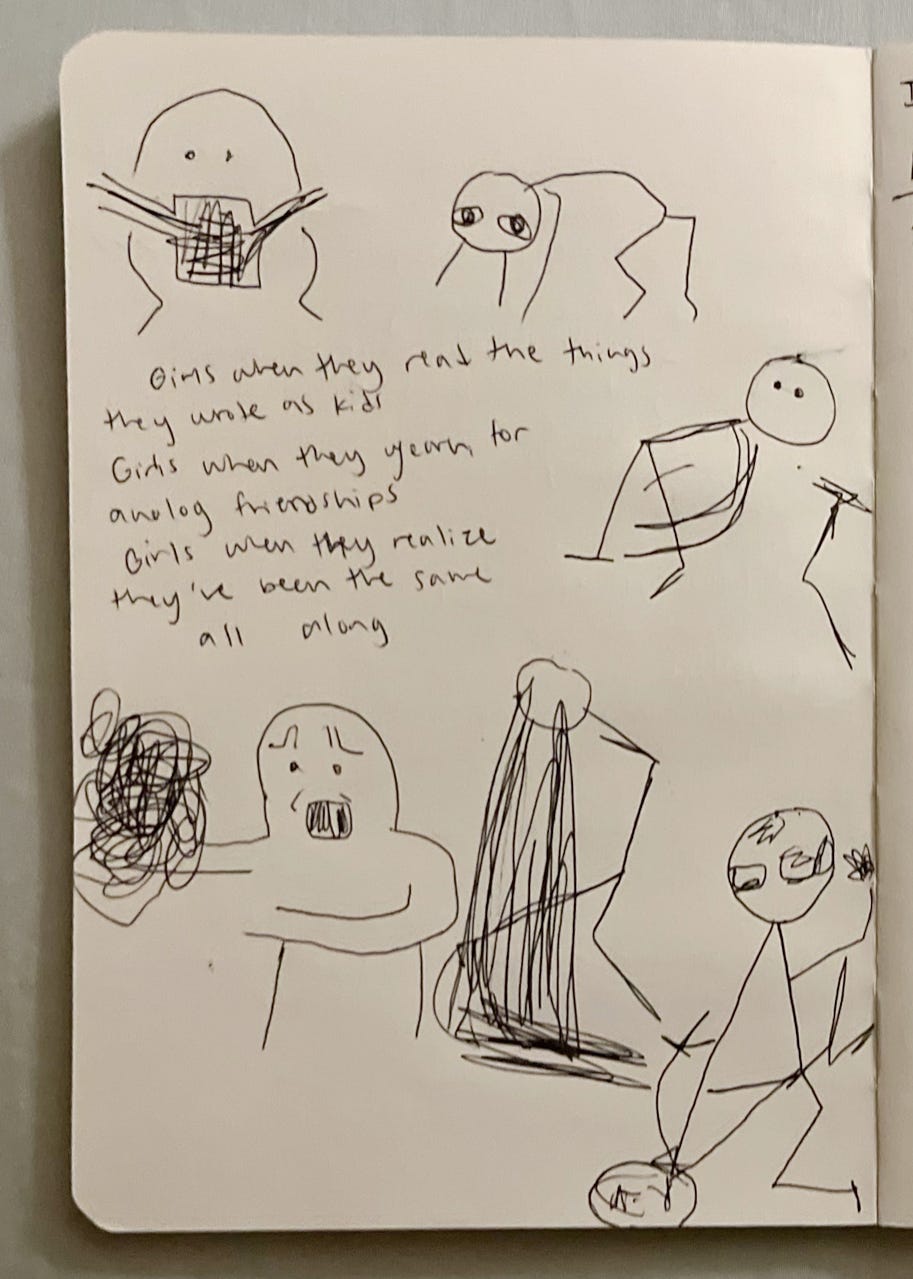 Girls when they read the things
they wrote as kids
Girls when they yearn for
analog friendships
Girls when they realize
they've been the same
all along